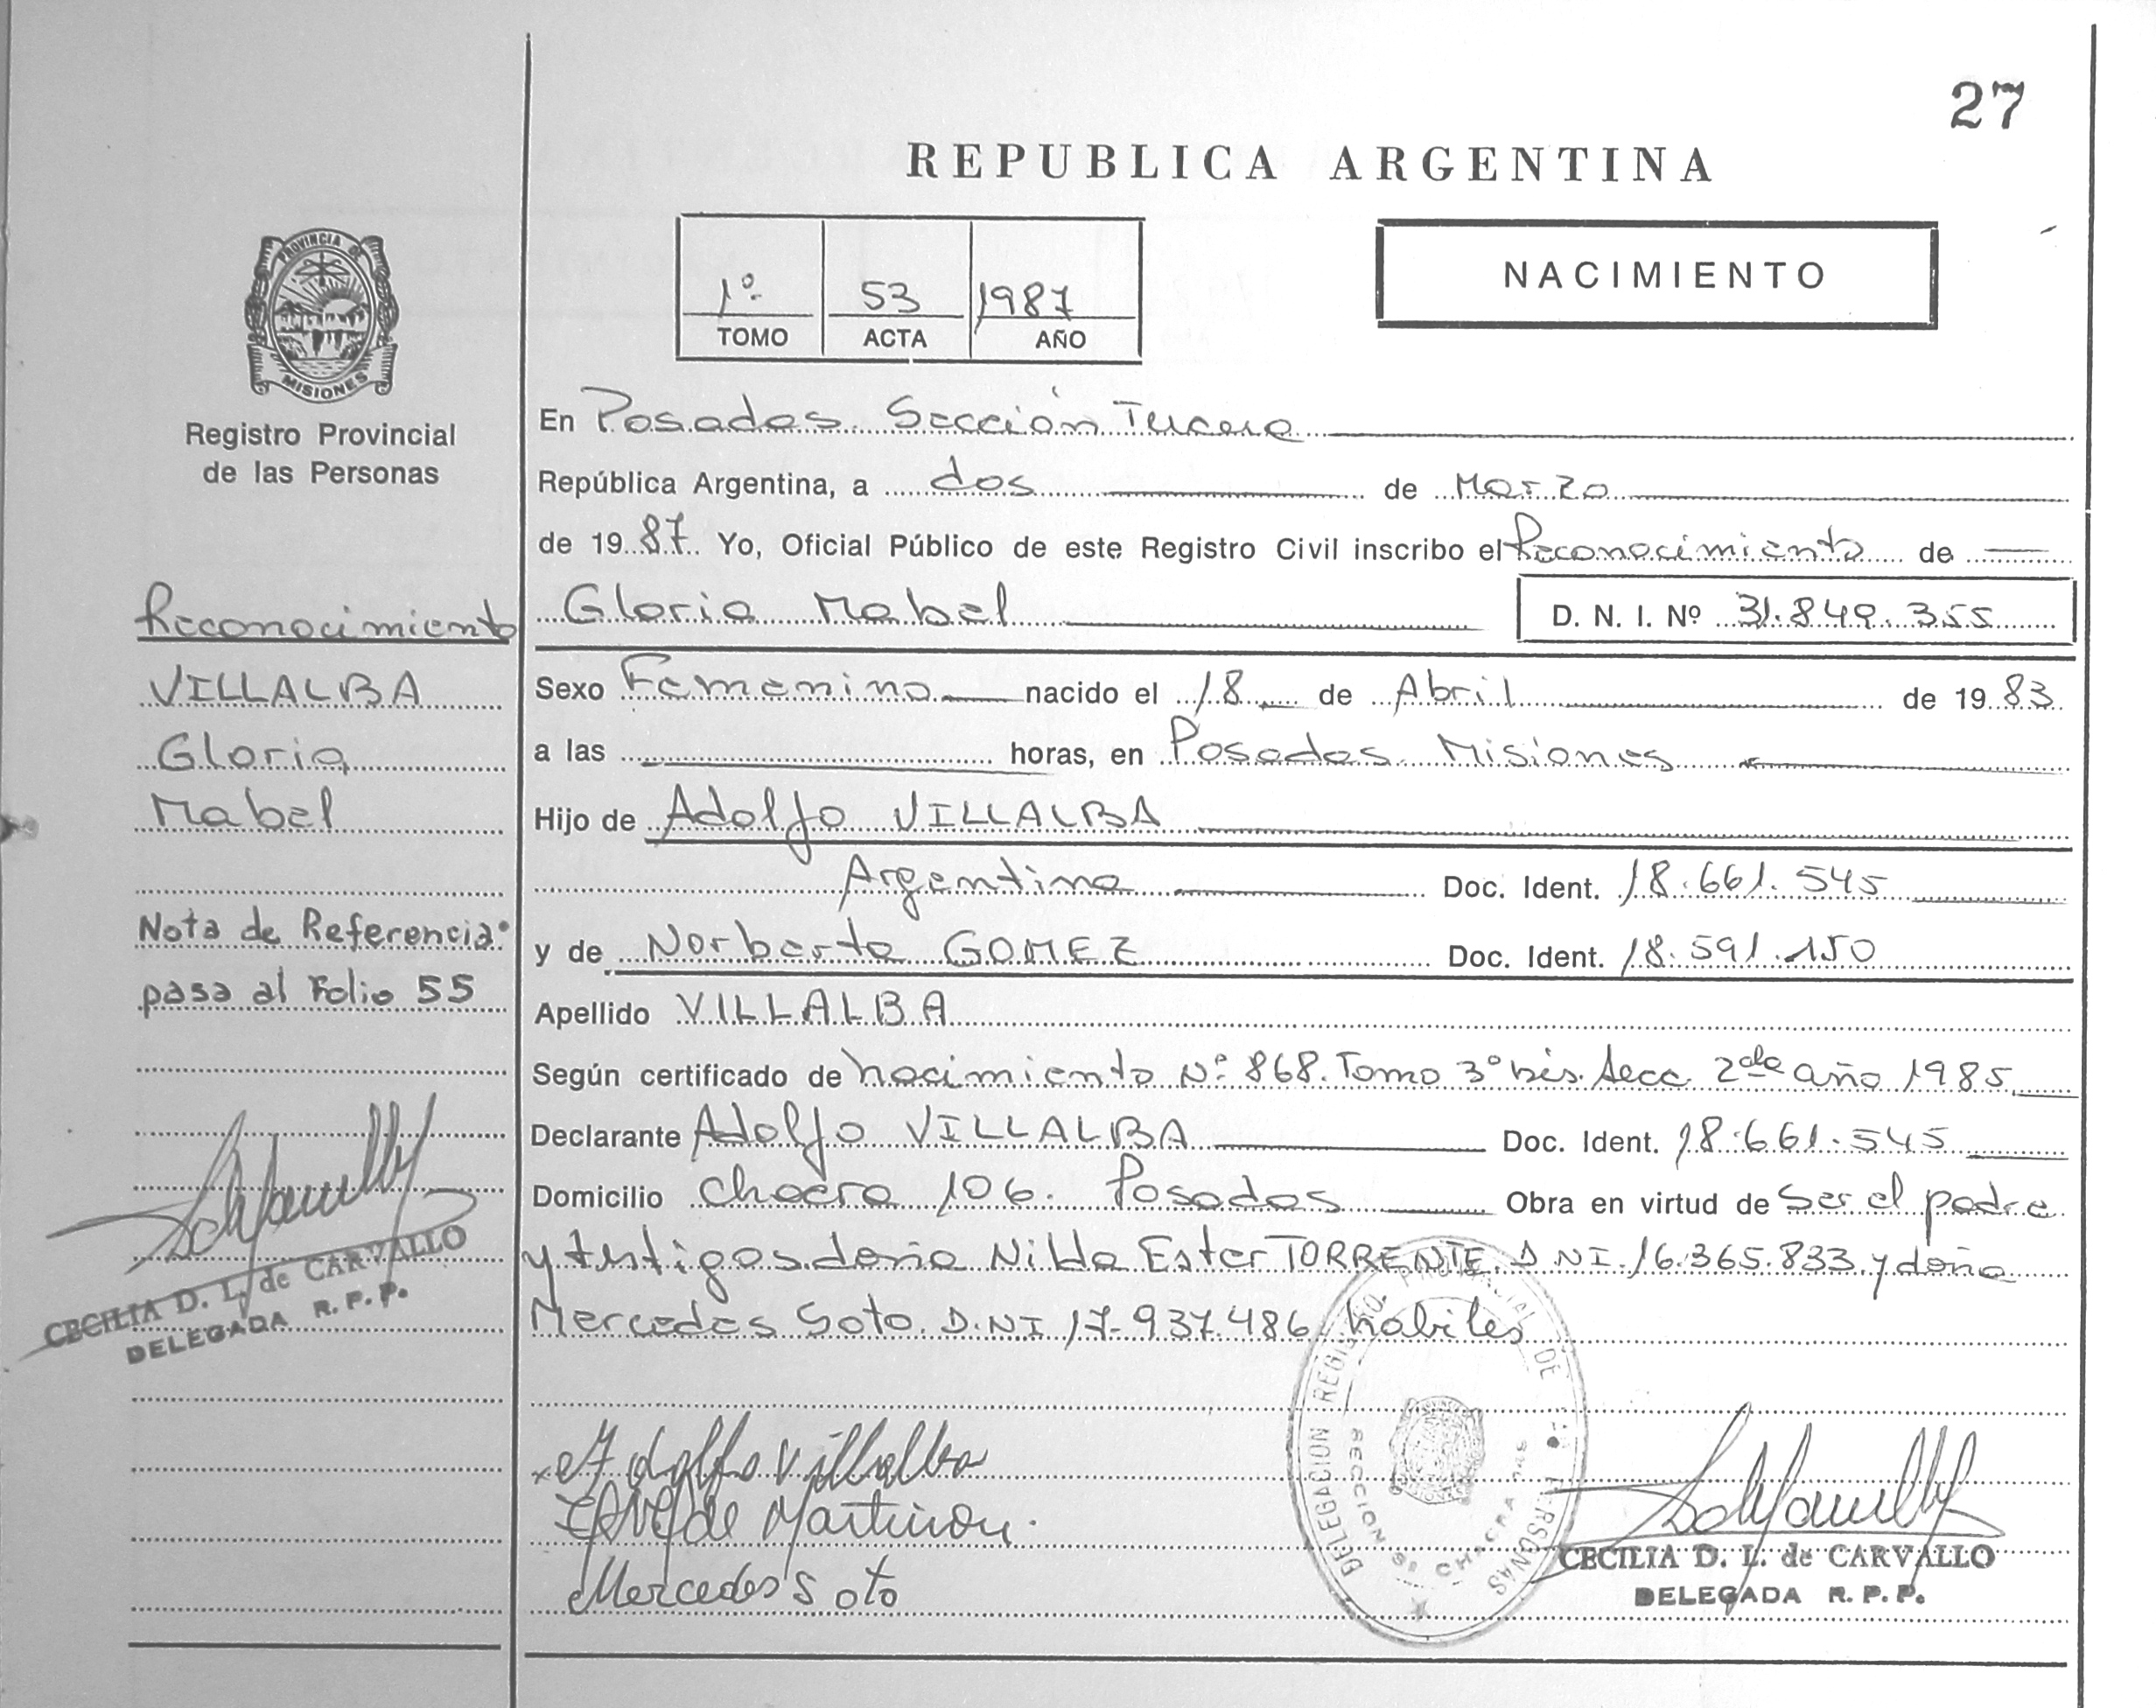 27
REPUBLICA ARGENTINA
1º 53 1987
TOMO ACTA AÑO
NACIMIENTO
PROVINCIA DE
MISIONES
Registro Provincial
de las Personas
Reconocimiento
VILLALBA
Gloria
Mabel
Nota de Referencia:
pasa al Folio 55
CECILIA D. L. de CARVALLO
DELEGADA R. P. P.
En Posadas Sección Tercera
República Argentina, a dos de Marzo
de 1987. Yo, Oficial Público de este Registro Civil inscribo el Reconocimiento de
Gloria Mabel D. N. I. Nº 31.849.355
Sexo Femenino nacido el 18 de Abril de 1983
a las horas, en Posadas Misiones
Hijo de Adolfo VILLALBA
Argentino Doc. Ident. 18.661.545
y de Norberta GOMEZ Doc. Ident. 18.591.150
Apellido VILLALBA
Según certificado de nacimiento Nº 868. Tomo 3º bis. Secc. 2da año 1985
Declarante Adolfo VILLALBA Doc. Ident. 18.661.545
Domicilio Chacra 106. Posadas Obra en virtud de Ser el padre
y testigos doña Nilda Ester TORRENTE D NI. 16.365.833 y doña
Mercedes Soto D.NI 17.937.486 hábiles
Adolfo Villalba
de
Mercedes Soto
DELEGACION REGISTRO PROVINCIAL DE PERSONAS
SECCION CHACRA
CECILIA D. L. de CARVALLO
DELEGADA R. P. P.